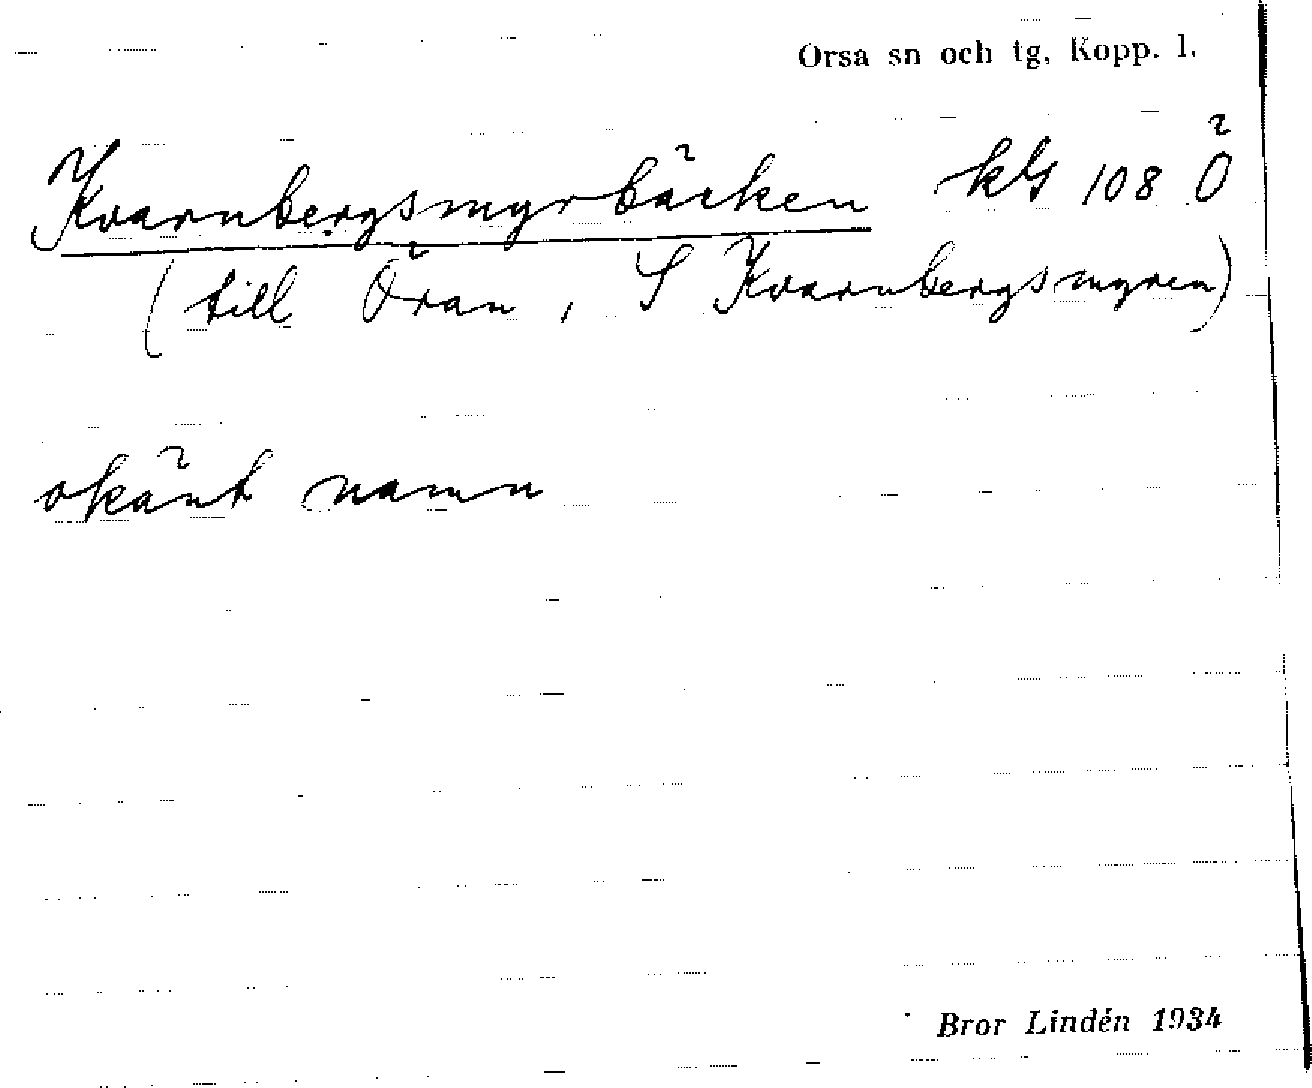 Orsa sn och tg, Kopp. l.
Kvarnbergsmyrbäcken kbl 108 Ö
(till Öran, S Kvarnbergsmyren)
okänt namn
Bror Lindén 1934